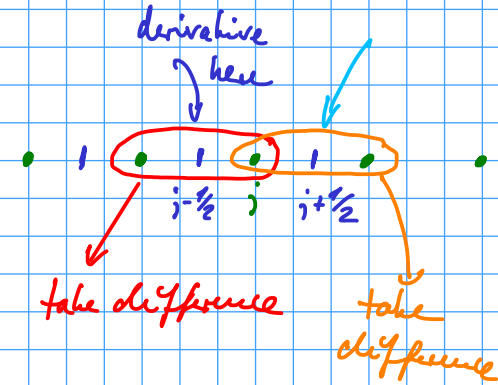 derivative
here
j-1/2
j
j+1/2
take difference
take
difference